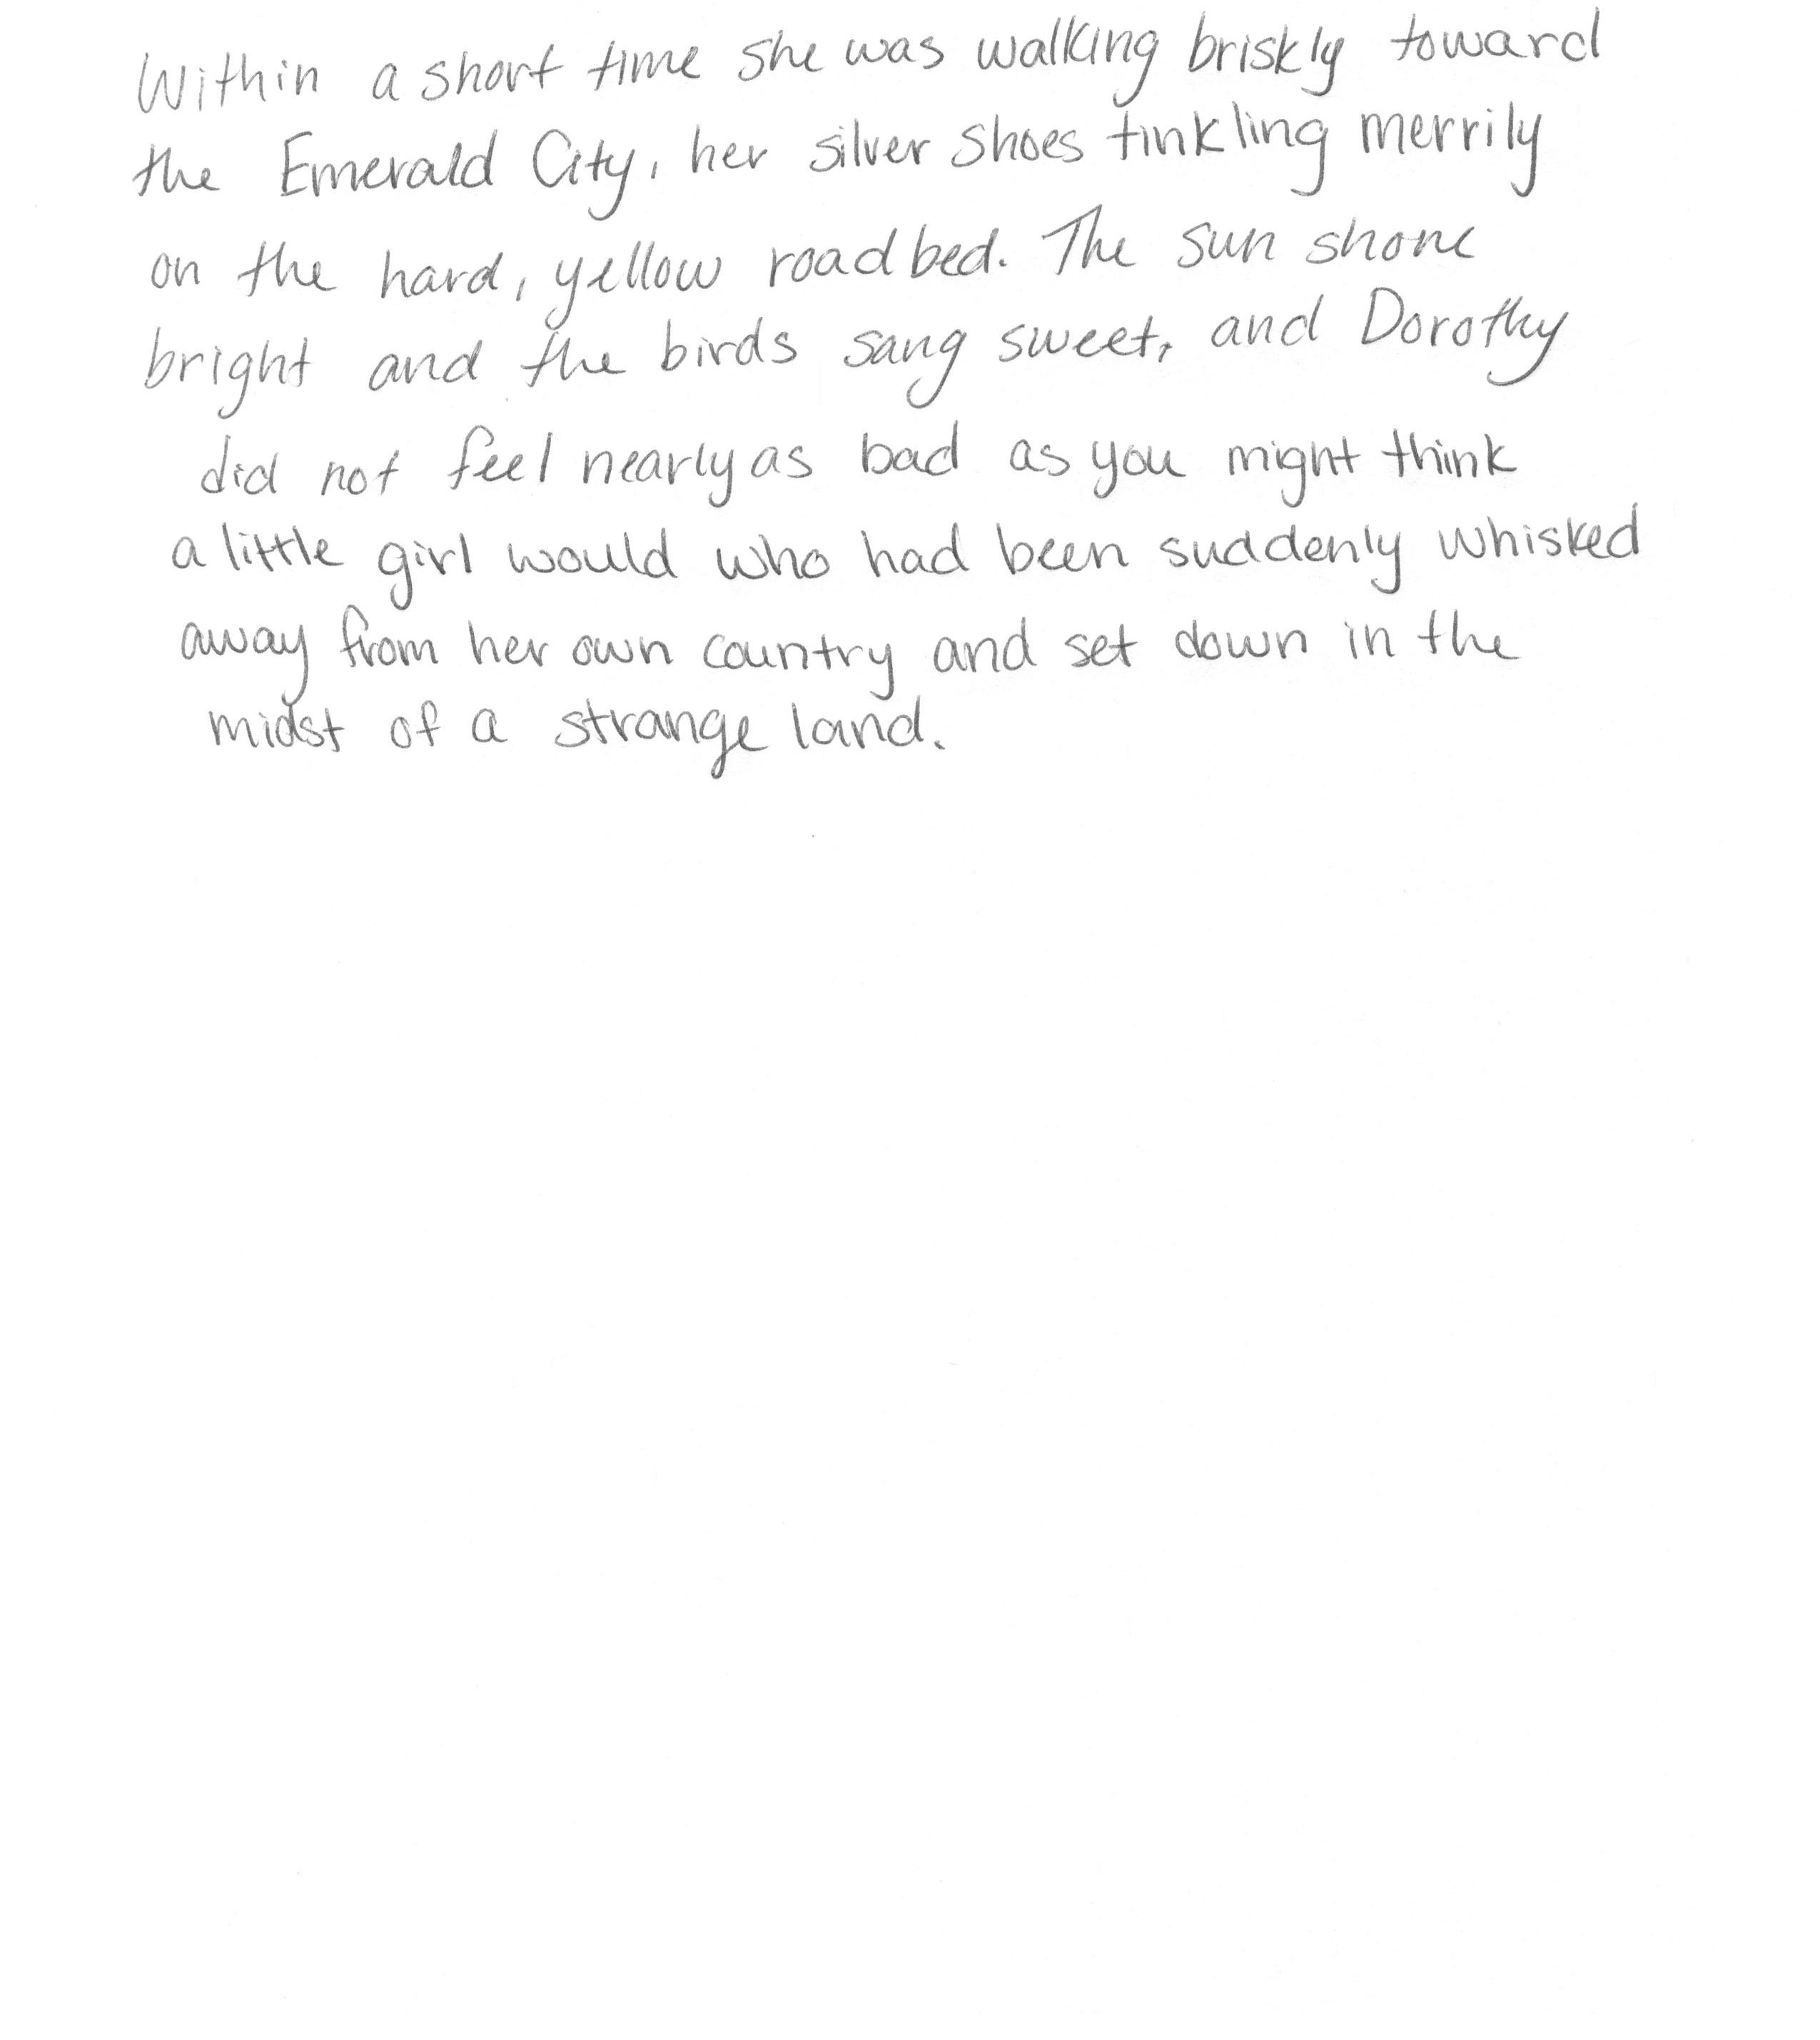 Within a short time she was walking briskly toward
the Emerald City, her silver shoes tinkling merrily
on the hard, yellow roadbed. The sun shone
bright and the birds sang sweet, and Dorothy
did not feel nearly as bad as you might think
a little girl would who had been suddenly whisked
away from her own country and set down in the
midst of a strange land.